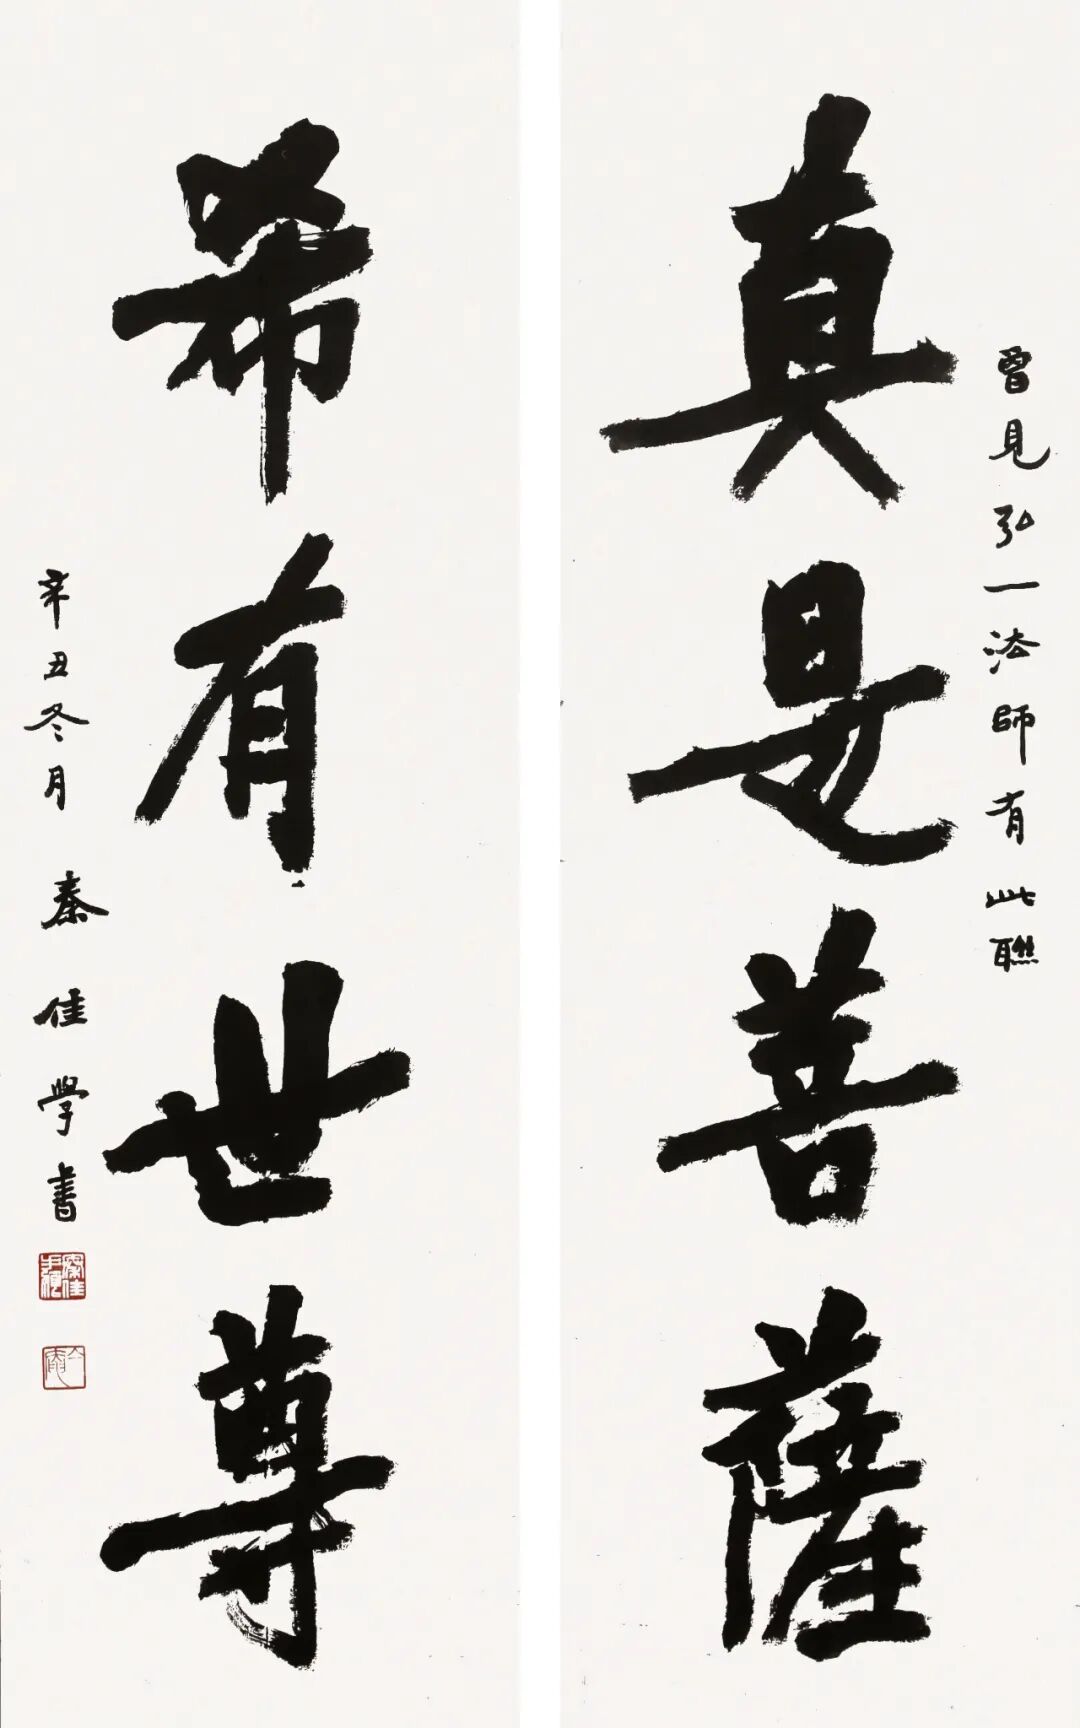 曾見弘一法師有此聯
真是善薩
希有世尊
辛丑冬月 秦佳學書